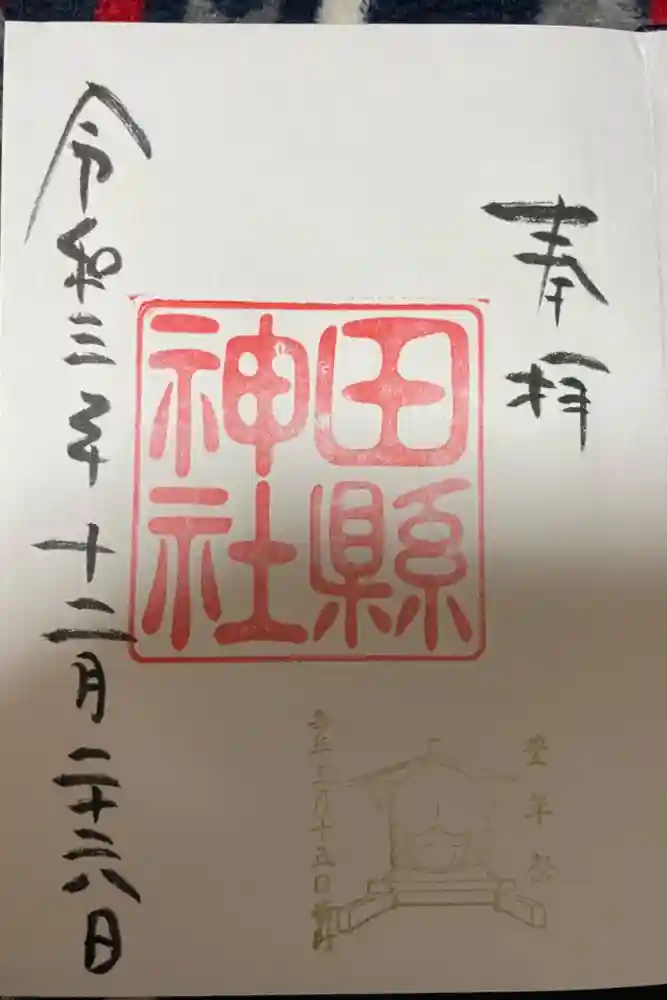 奉拝
田縣
神社
令和三年十二月二十六日
豊年祭
毎年三月十五日